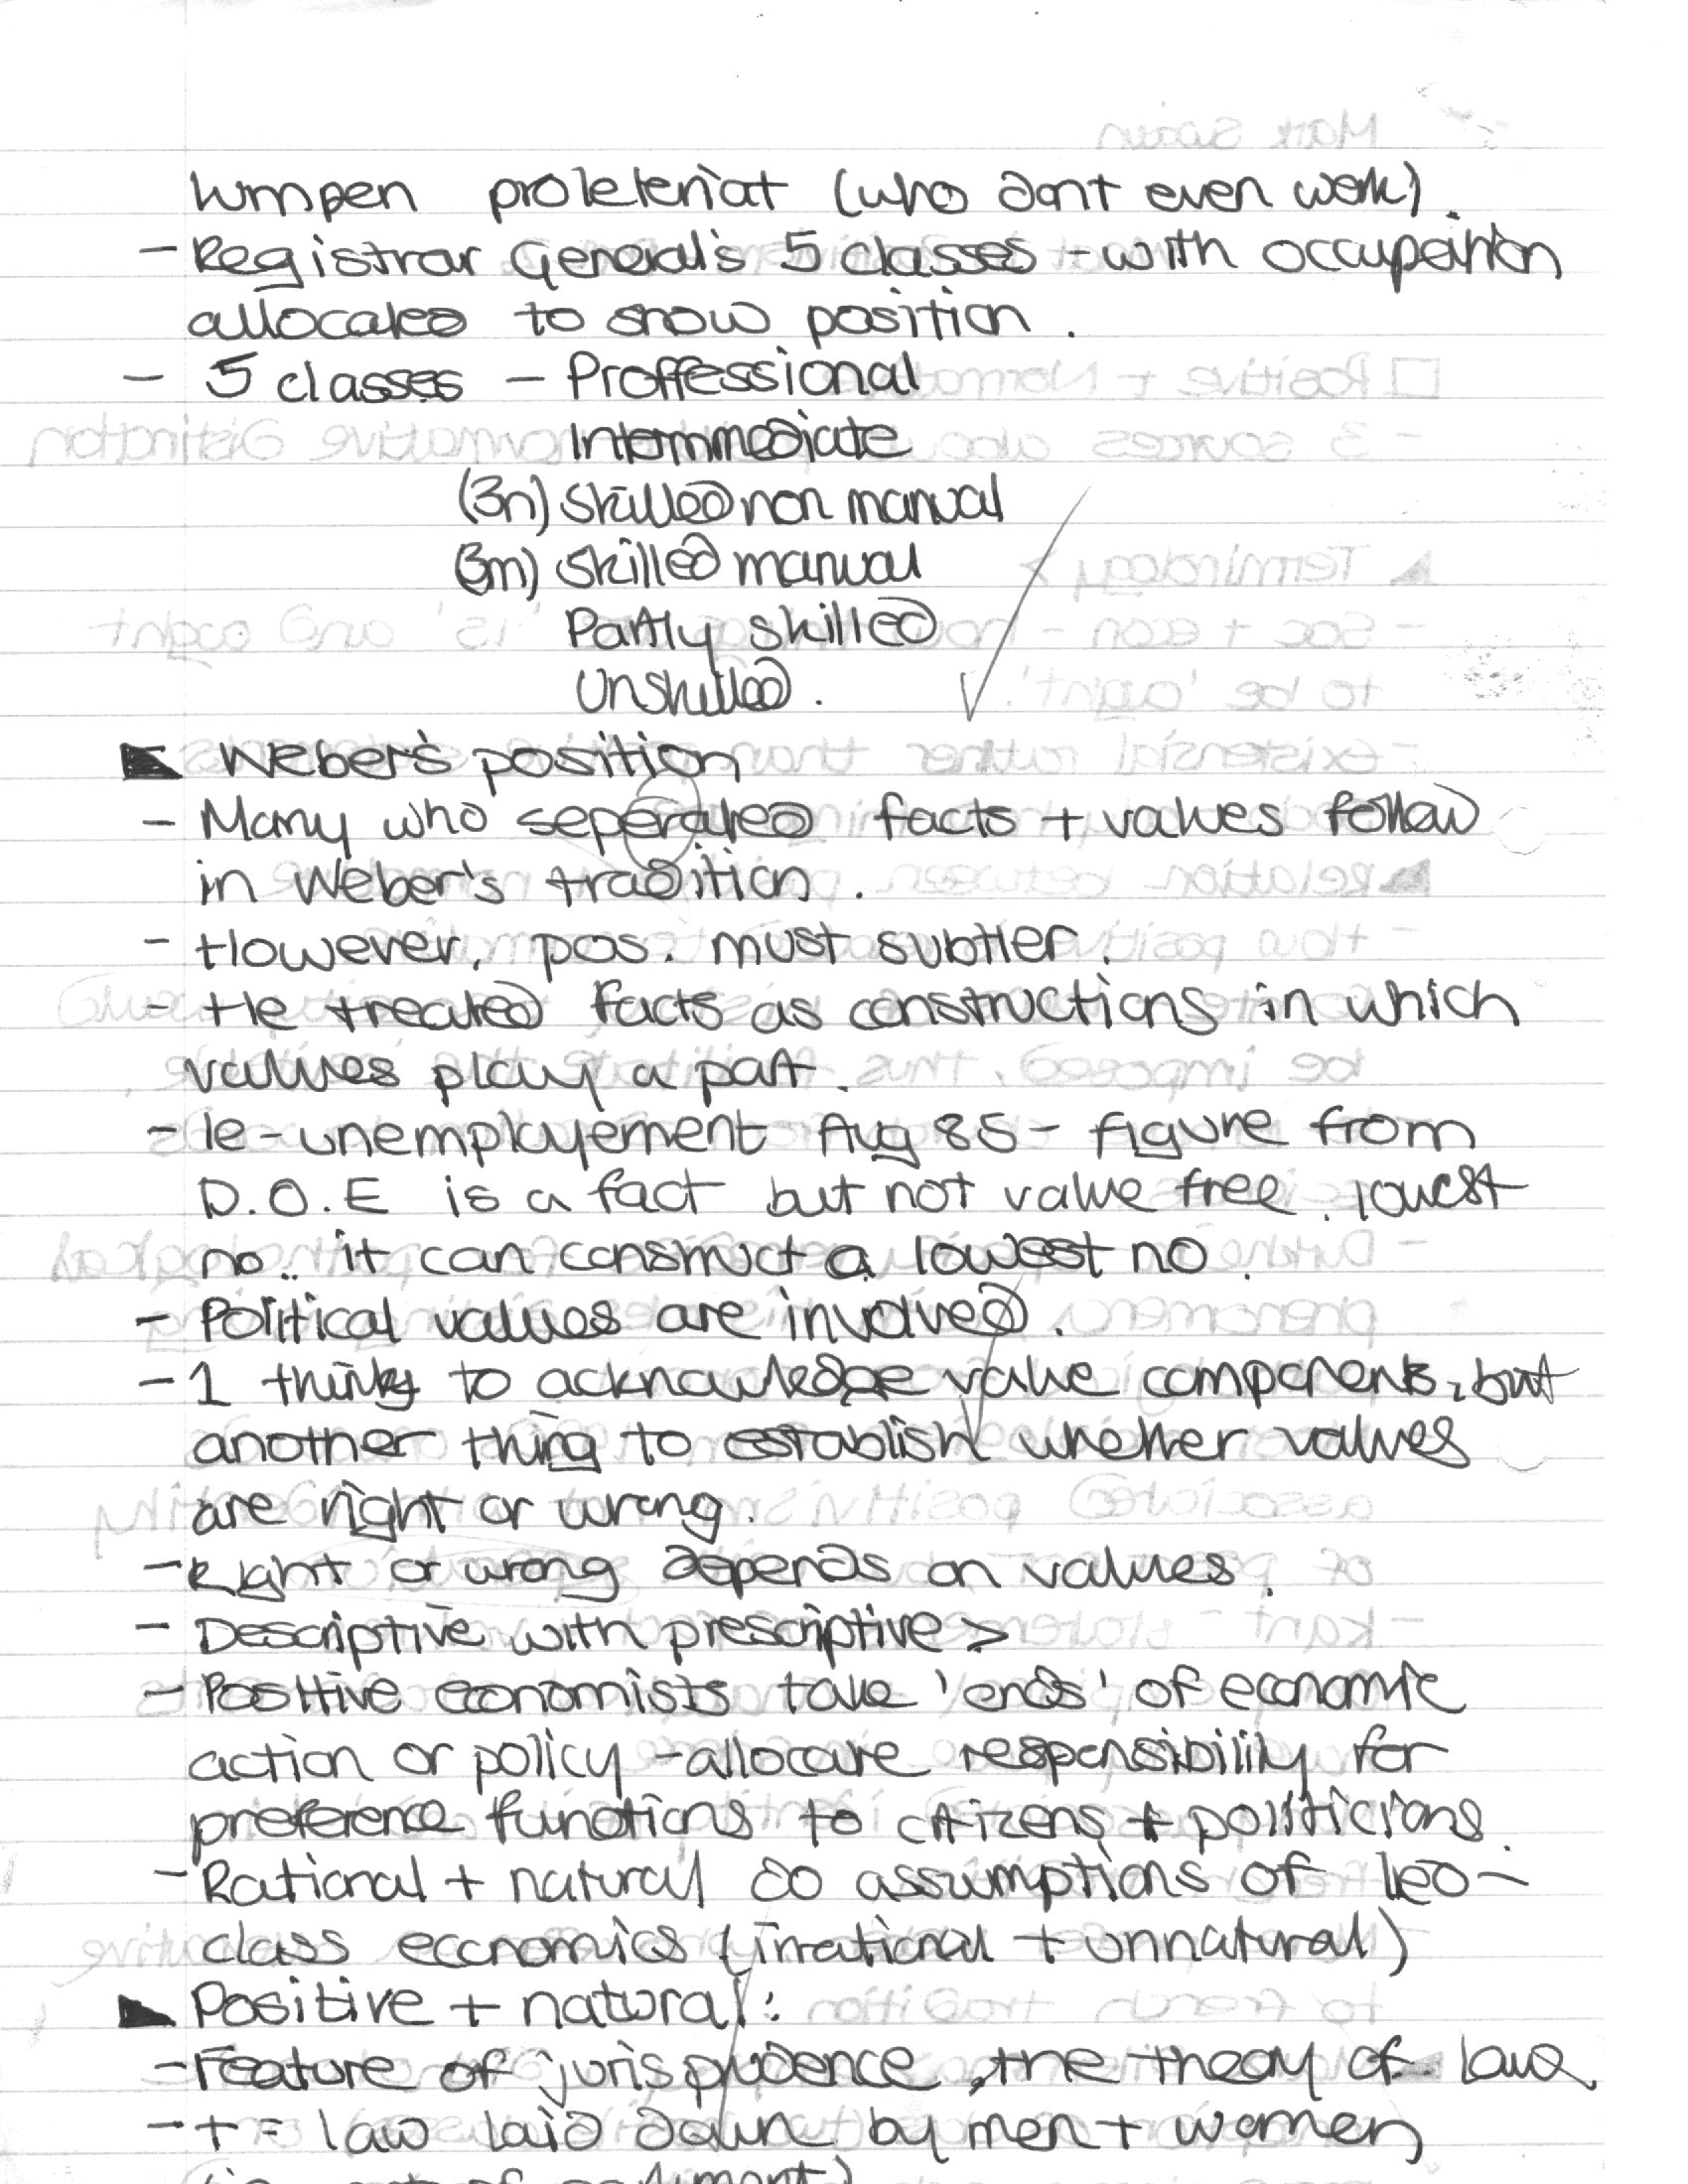 lumpen proleteriat (who don't even work).
- Registrar General's 5 classes - with occupation
allocated to show position.
- 5 classes - Proffessional
Intermmediate
(3n) Skilled non manual
(3m) Skilled manual
Partly skilled
Unskilled.
Weber's position
- Many who seperated facts + values follow
in Weber's tradition.
- However, pos. must subtler.
- He treated facts as constructions in which
values play a part.
- Ie - unemployement Aug 85 - figure from
D.O.E is a fact but not value free. lowest
no.. it can construct a lowest no.
- Political values are involved.
- 1 thing to acknowledge value components, but
another thing to establish whether values
are right or wrong.
- Right or wrong depends on values.
- Descriptive with prescriptive >
- Positive economists take 'ends' of economic
action or policy - allocate responsibility for
preference functions to citizens + politicians.
- Rational + natural do assumptions of
class economics (irrational + unnatural)
Positive + natural:
- Feature of jurisprudence, the theory of law
- + = law laid down by men + women